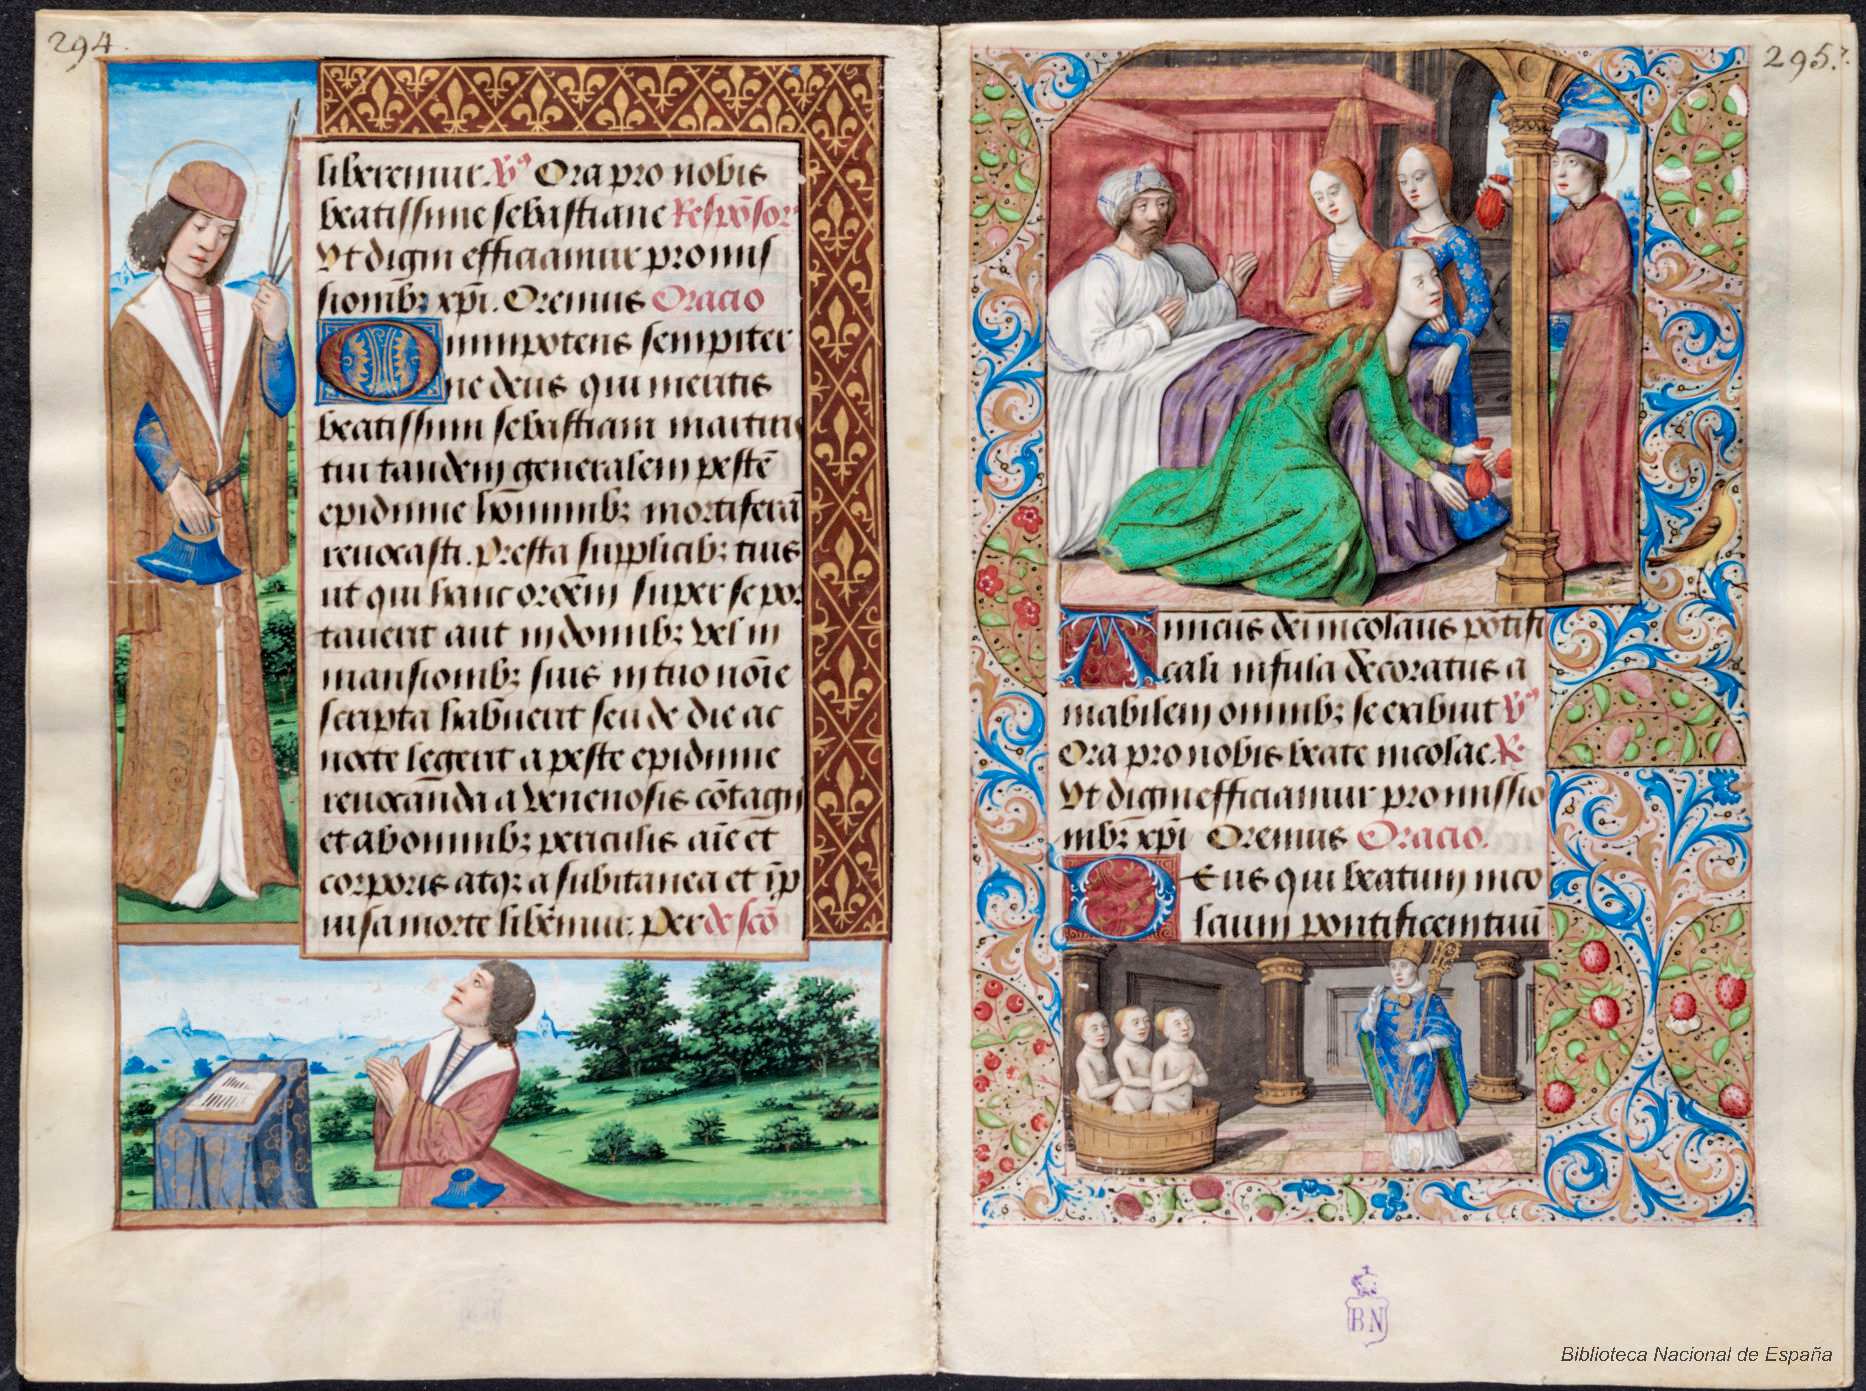 294.
liberemur. V Ora pro nobis
beatissime sebastiane Respõsor
Vt digni efficiamur promis
siomb⁊ xp̃i. Oremus Oracio
Omnipotens sempiter
ne deus qui meritis
beatissimi sebastiani martiris
tui tandem generalem pestẽ
epidimie hom̃inib⁊ mortiferã
reuocasti. Presta supplicib⁊ tuis
ut qui hanc orõem super se por
tauerit aut in domib⁊ vel in
mansionib⁊ suis in tuo nõie
scripta habuerit seu de die ac
nocte legerit a peste epidimie
reuocãnda a venenosis cõtagij
et ab omnib⁊ periculis aĩe et
corporis atq⁊ a subitanea et ĩp
uisa morte libẽmur. Per de scõ
295.
Amicus dei nicolaus põtifi
cali infula decoratus a
mabilem omnib⁊ se exibuit V
Ora pro nobis beate nicolae. R
Vt digni efficiamur promissio
nib⁊ xp̃i Oremus Oracio.
Deus qui beatum nico
laum pontificem tuũ
BN
Biblioteca Nacional de España